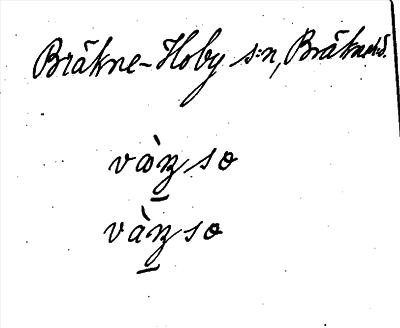 Bräkne-Hoby s:n, Bräkne hd.
vànso
vànso